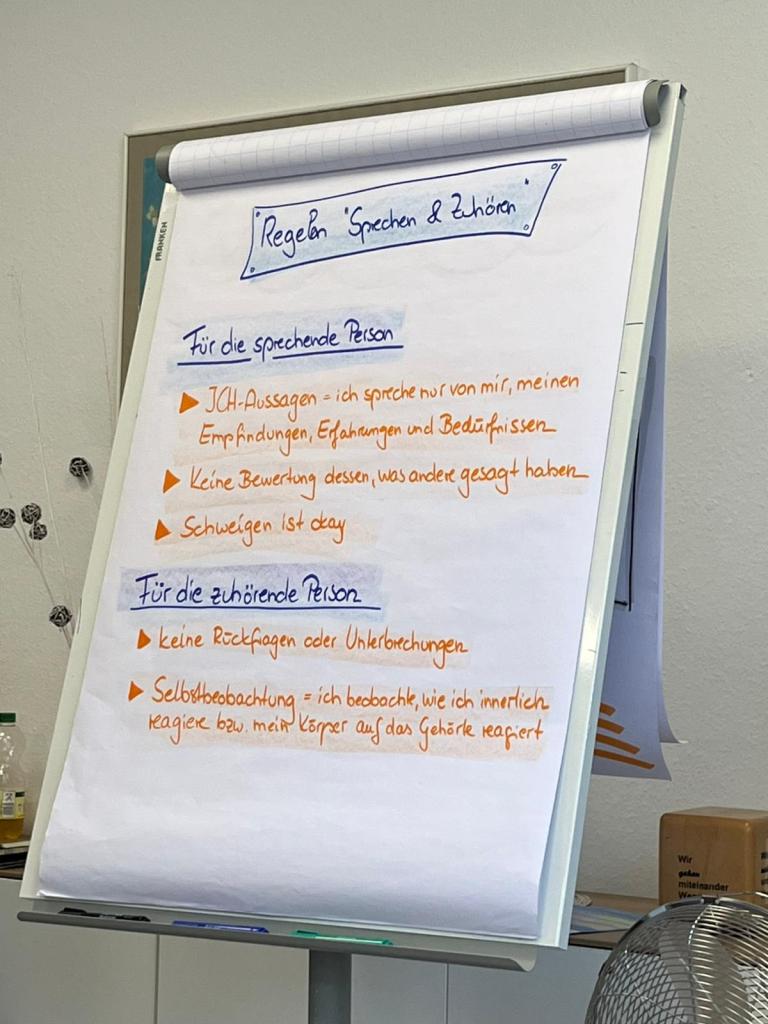 FRANKEN
Regeln "Sprechen & Zuhören"
Für die sprechende Person
ICH-Aussagen = ich spreche nur von mir, meinen
Empfindungen, Erfahrungen und Bedürfnissen
Keine Bewertung dessen, was andere gesagt haben
Schweigen ist okay
Für die zuhörende Person
keine Rückfragen oder Unterbrechungen
Selbstbeobachtung = ich beobachte, wie ich innerlich
reagiere bzw. mein Körper auf das Gehörte reagiert
Wir
gehen
miteinander